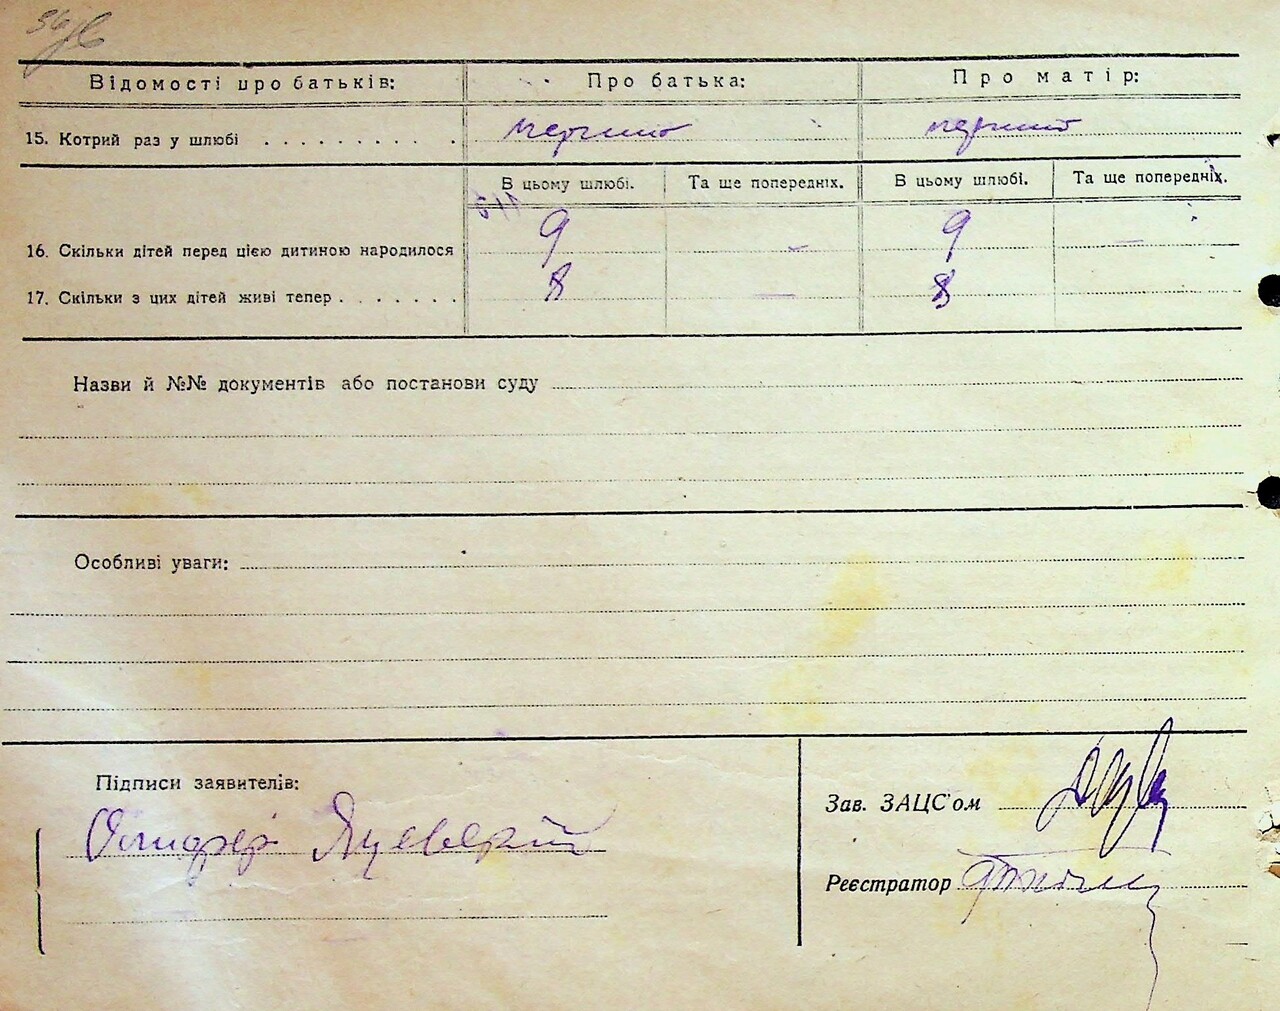 Відомості про батьків: Про батька: Про матір:
15. Котрий раз у шлюбі . . . . . . . . . . перший перший
В цьому шлюбі. Та ще попередніх. В цьому шлюбі. Та ще попередніх.
16. Скільки дітей перед цією дитиною народилося 9 – 9 —
17. Скільки з цих дітей живі тепер . . . . . . . 8 — 8
Назви й №№ документів або постанови суду
Особливі уваги:
Підписи заявителів:
Зав. ЗАЦС'ом
Реєстратор